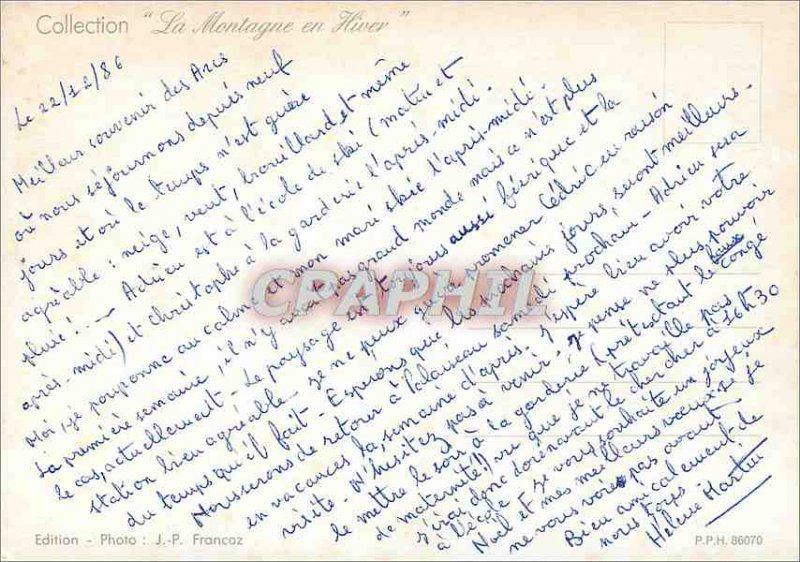 Collection "La Montagne en Hiver"
Le 22/12/86
Meilleur souvenir des Arcs
où nous séjournons depuis neuf
jours et où le temps n'est guère
agréable : neige, vent, brouillard et même
pluie! - Adrien est à l'école de ski (matin et
après-midi) et Christophe à la garderie l'après-midi.
Moi, je pouponne au calme et mon mari skie l'après-midi.
La première semaine, il n'y avait pas grand monde mais ce n'est plus
le cas, actuellement - Le paysage est toujours aussi féérique et la
station bien agréable - je ne peux que promener Cédric en raison
du temps qu'il fait - Espérons que les prochains jours seront meilleurs.
Nous serons de retour à Palaiseau samedi prochain - Adrien sera
en vacances la semaine d'après. J'espère bien avoir votre
visite - N'hésitez pas à venir - je pense ne plus pouvoir
le mettre le soir à la garderie (prétextant le congé
de maternité!) vu que je ne travaille pas
j'irai donc dorénavant le chercher à 16h30
à l'école - je vous souhaite un joyeux
Noël et mes meilleurs vœux si je
ne vous vois pas avant
Bien amicalement de
nous tous
Hélène Martin
CPAPHIL
Edition - Photo : J.-P. Francoz
P.P.H. 86070